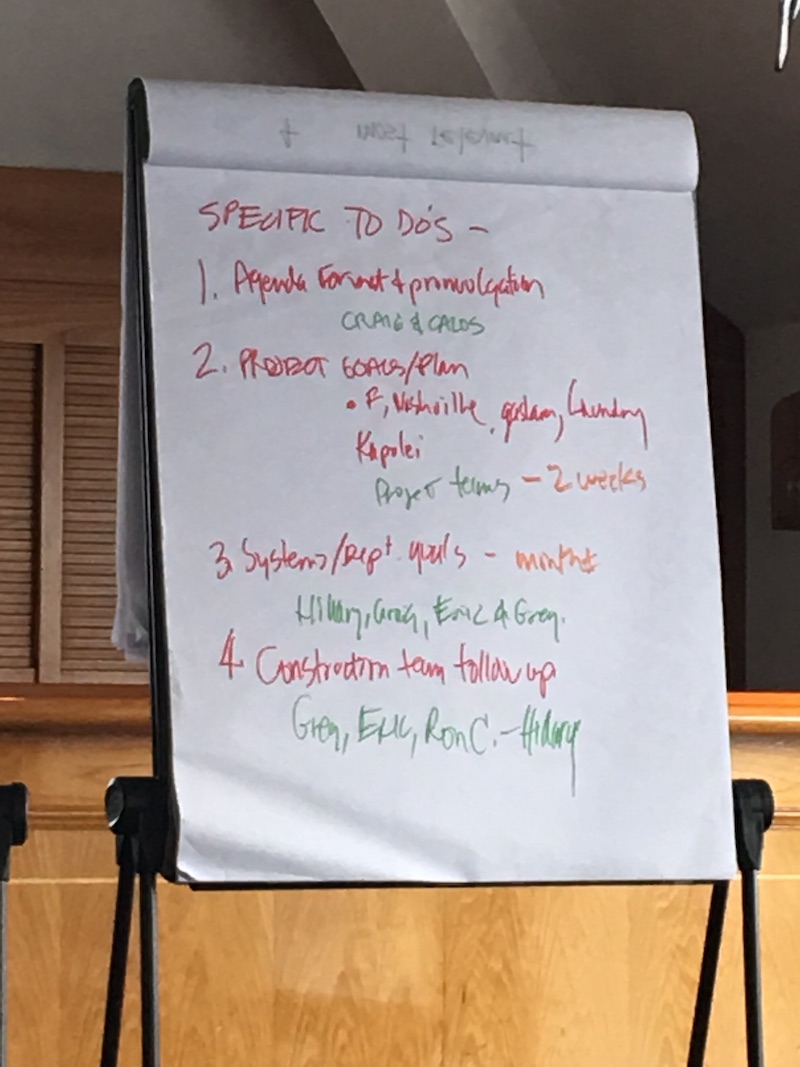 SPECIFIC TO DO'S -
1. Agenda Format & promulgation
CRAIG &
2. PROJECT GOALS/Plan
• F, Nashville, Laundry
Kapolei
Project teams - 2 weeks
3. Systems/Dept. goals - months
Hillary, Greg, Eric & Greg.
4. Construction team follow up
Greg, Eric, Ron C. - Hilary